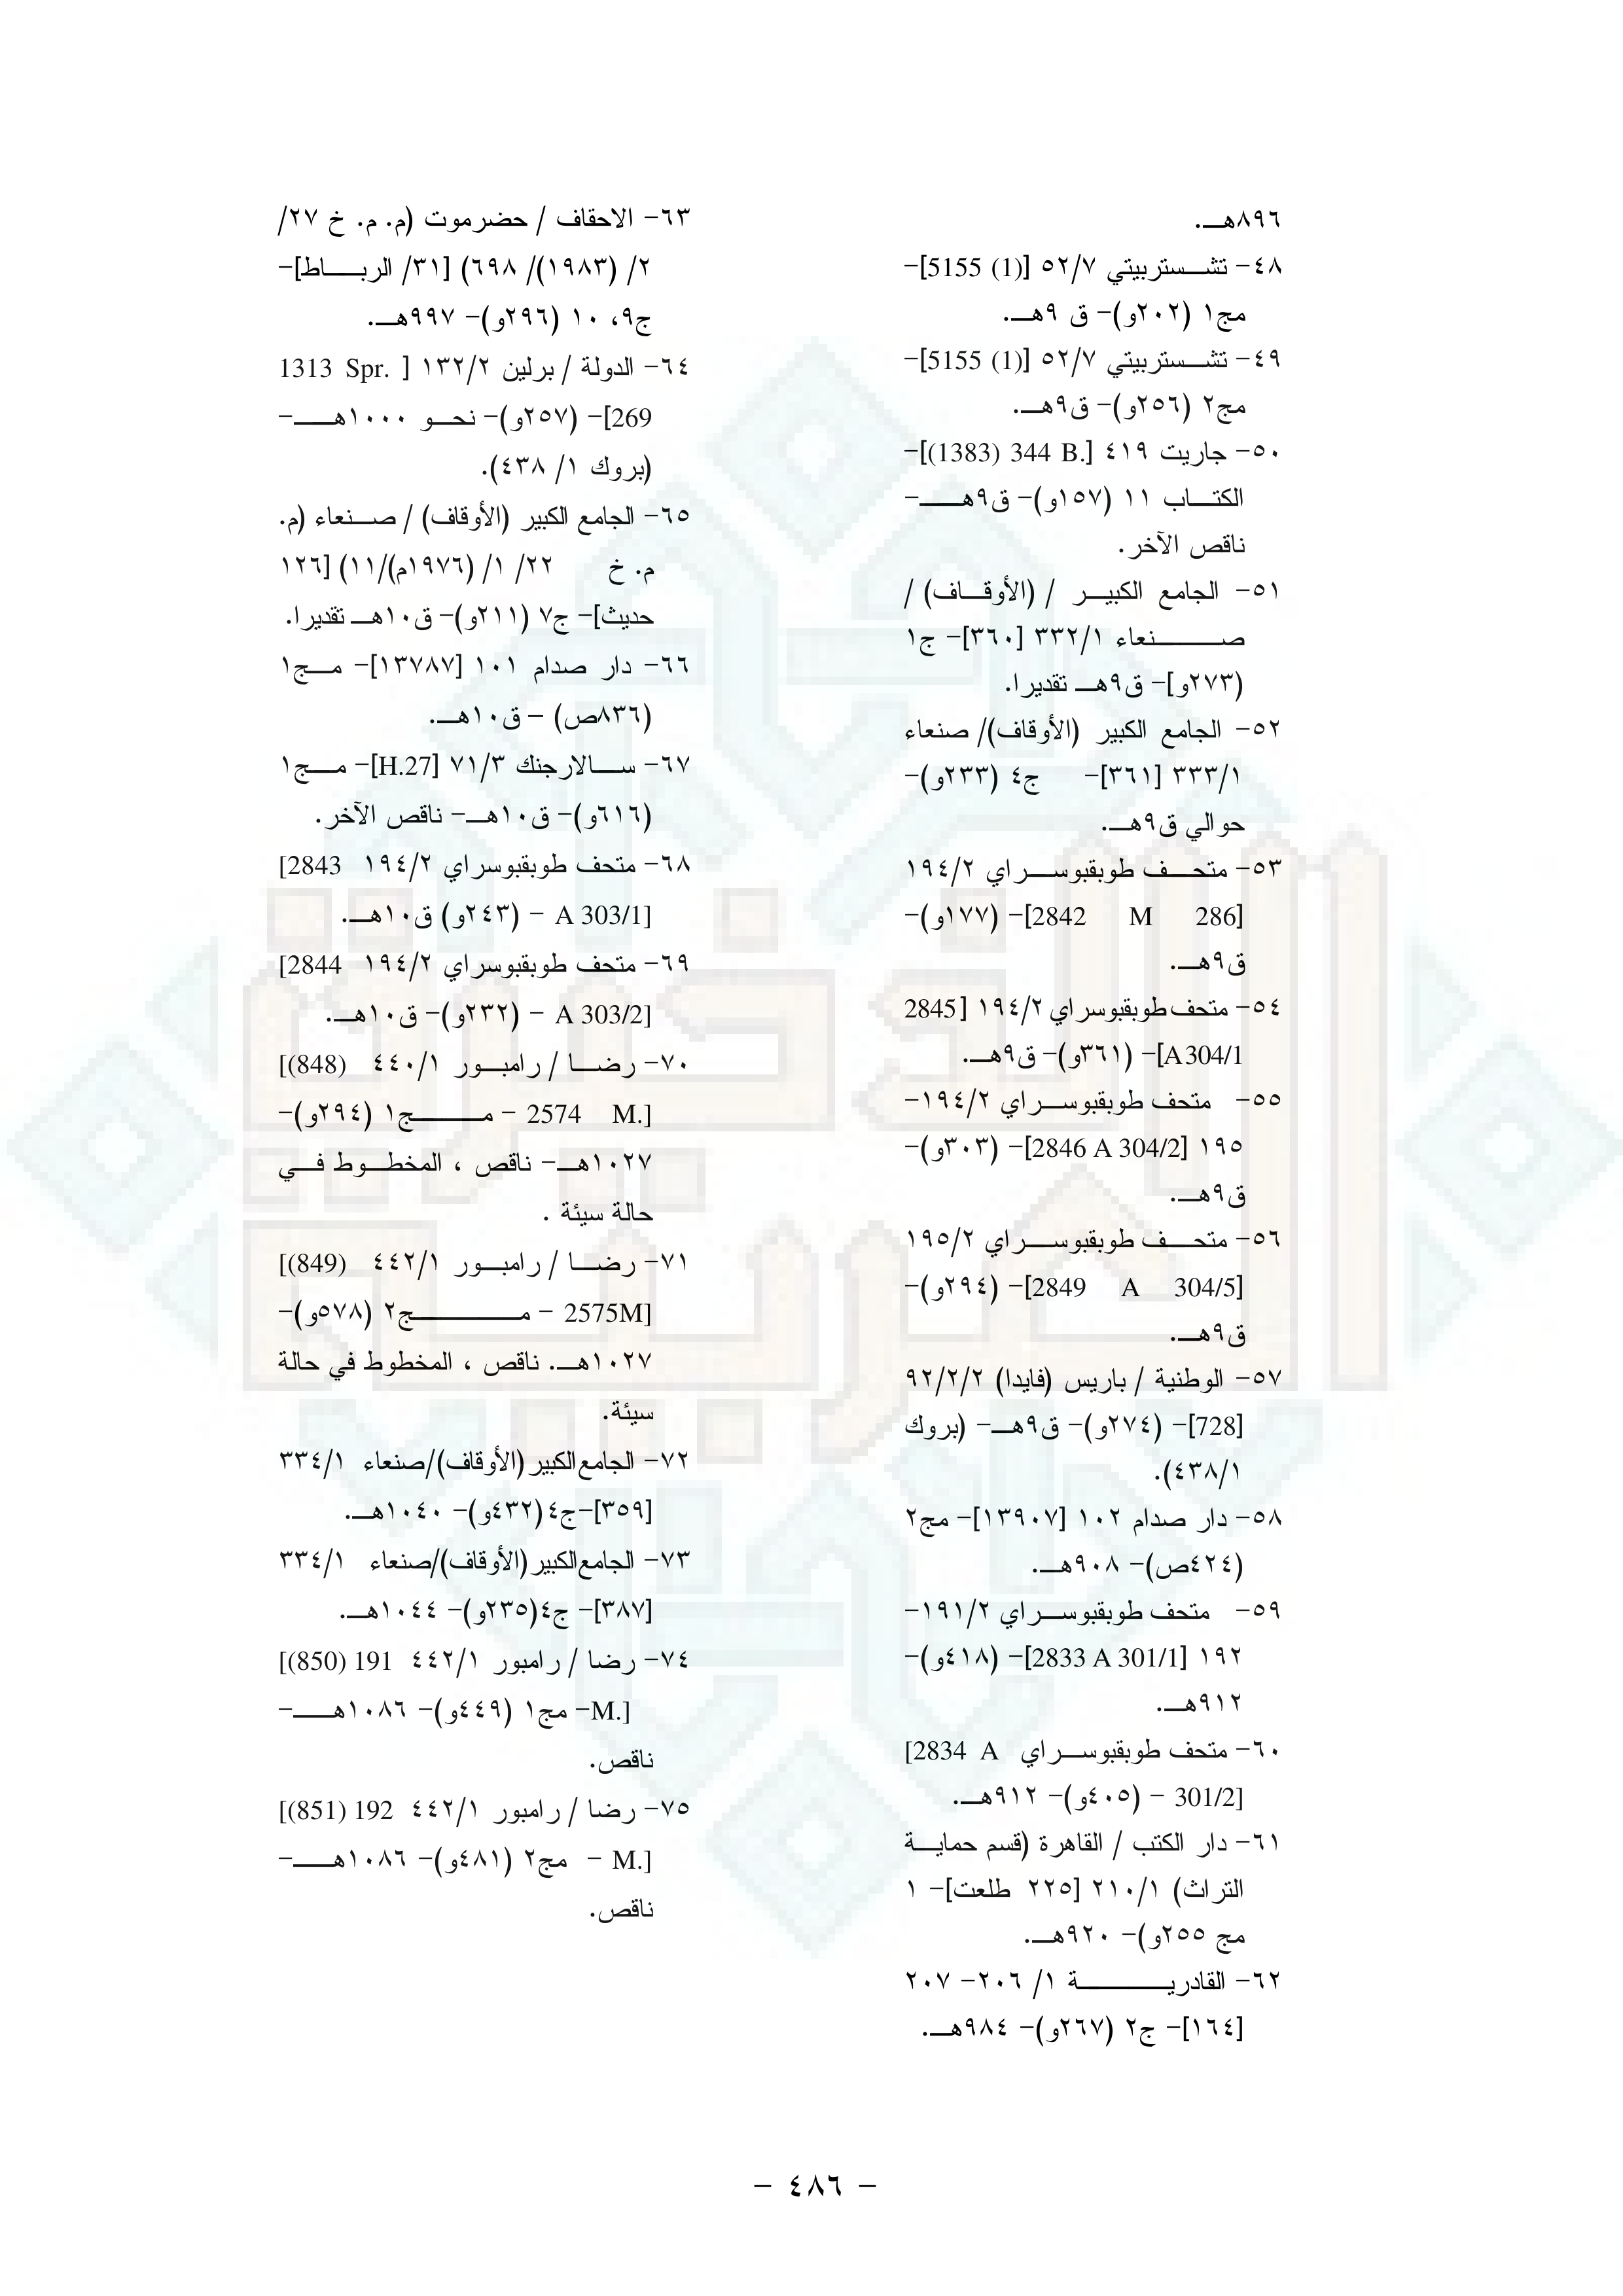 ٨٩٦هـ.
٤٨- تشستربيتي ٥٢/٧ [5155 (1)]-
مج١ (٢٠٢و)- ق ٩هـ.
٤٩- تشستربيتي ٥٢/٧ [5155 (1)]-
مج٢ (٢٥٦و)- ق٩هـ.
٥٠- جاريت ٤١٩ [344 B. (1383)]-
الكتاب ١١ (١٥٧و)- ق٩هـ-
ناقص الآخر.
٥١- الجامع الكبير / (الأوقاف) /
صنعاء ٣٣٢/١ [٣٦٠]- ج١
(٢٧٣و]- ق٩هـ تقديرا.
٥٢- الجامع الكبير (الأوقاف)/ صنعاء
٣٣٣/١ [٣٦١]- ج٤ (٢٣٣و)-
حوالي ق٩هـ.
٥٣- متحف طوبقبوسراي ١٩٤/٢
[2842 M 286]- (١٧٧و)-
ق٩هـ.
٥٤- متحف طوبقبوسراي ١٩٤/٢ [2845
A 304/1]- (٣٦١و)- ق٩هـ.
٥٥- متحف طوبقبوسراي ١٩٤/٢-
١٩٥ [2846 A 304/2]- (٣٠٣و)-
ق٩هـ.
٥٦- متحف طوبقبوسراي ١٩٥/٢
[2849 A 304/5]- (٢٩٤و)-
ق٩هـ.
٥٧- الوطنية / باريس (فايدا) ٩٢/٢/٢
[728]- (٢٧٤و)- ق٩هـ- (بروك
٤٣٨/١).
٥٨- دار صدام ١٠٢ [١٣٩٠٧]- مج٢
(٤٢٤ص)- ٩٠٨هـ.
٥٩- متحف طوبقبوسراي ١٩١/٢-
١٩٢ [2833 A 301/1]- (٤١٨و)-
٩١٢هـ.
٦٠- متحف طوبقبوسراي [2834 A
301/2] - (٤٠٥و)- ٩١٢هـ.
٦١- دار الكتب / القاهرة (قسم حماية
التراث) ٢١٠/١ [٢٢٥ طلعت]- ١
مج ٢٥٥و)- ٩٢٠هـ.
٦٢- القادرية ١/ ٢٠٦- ٢٠٧
[١٦٤]- ج٢ (٢٦٧و)- ٩٨٤هـ.
٦٣- الاحقاف / حضرموت (م. م. خ ٢٧/
٢/ (١٩٨٣)/ ٦٩٨) [٣١/ الرباط]-
ج٩، ١٠ (٢٩٦و)- ٩٩٧هـ.
٦٤- الدولة / برلين ١٣٢/٢ [ 1313 Spr.
269]- (٢٥٧و)- نحو ١٠٠٠هـ-
(بروك ١/ ٤٣٨).
٦٥- الجامع الكبير (الأوقاف) / صنعاء (م.
م. خ ٢٢/ ١/ (١٩٧٦م)/١١) [١٢٦
حديث]- ج٧ (٢١١و)- ق١٠هـ تقديرا.
٦٦- دار صدام ١٠١ [١٣٧٨٧]- مج١
(٨٣٦ص) - ق١٠هـ.
٦٧- سالارجنك ٧١/٣ [H.27]- مج١
(٦١٦و)- ق١٠هـ- ناقص الآخر.
٦٨- متحف طوبقبوسراي ١٩٤/٢ [2843
A 303/1] - (٢٤٣و) ق١٠هـ.
٦٩- متحف طوبقبوسراي ١٩٤/٢ [2844
A 303/2] - (٢٣٢و)- ق١٠هـ.
٧٠- رضا / رامبور ٤٤٠/١ [(848)
2574 M.] - مج١ (٢٩٤و)-
١٠٢٧هـ- ناقص ، المخطوط في
حالة سيئة .
٧١- رضا / رامبور ٤٤٢/١ [(849)
2575M] - مج٢ (٥٧٨و)-
١٠٢٧هـ. ناقص ، المخطوط في حالة
سيئة.
٧٢- الجامع الكبير (الأوقاف)/صنعاء ٣٣٤/١
[٣٥٩]-ج٤ (٤٣٢و)- ١٠٤٠هـ.
٧٣- الجامع الكبير (الأوقاف)/صنعاء ٣٣٤/١
[٣٨٧]- ج٤(٢٣٥و)- ١٠٤٤هـ.
٧٤- رضا / رامبور ٤٤٢/١ [(850) 191
M.]- مج١ (٤٤٩و)- ١٠٨٦هـ-
ناقص.
٧٥- رضا / رامبور ٤٤٢/١ [(851) 192
M.] - مج٢ (٤٨١و)- ١٠٨٦هـ-
ناقص.
- ٤٨٦ -